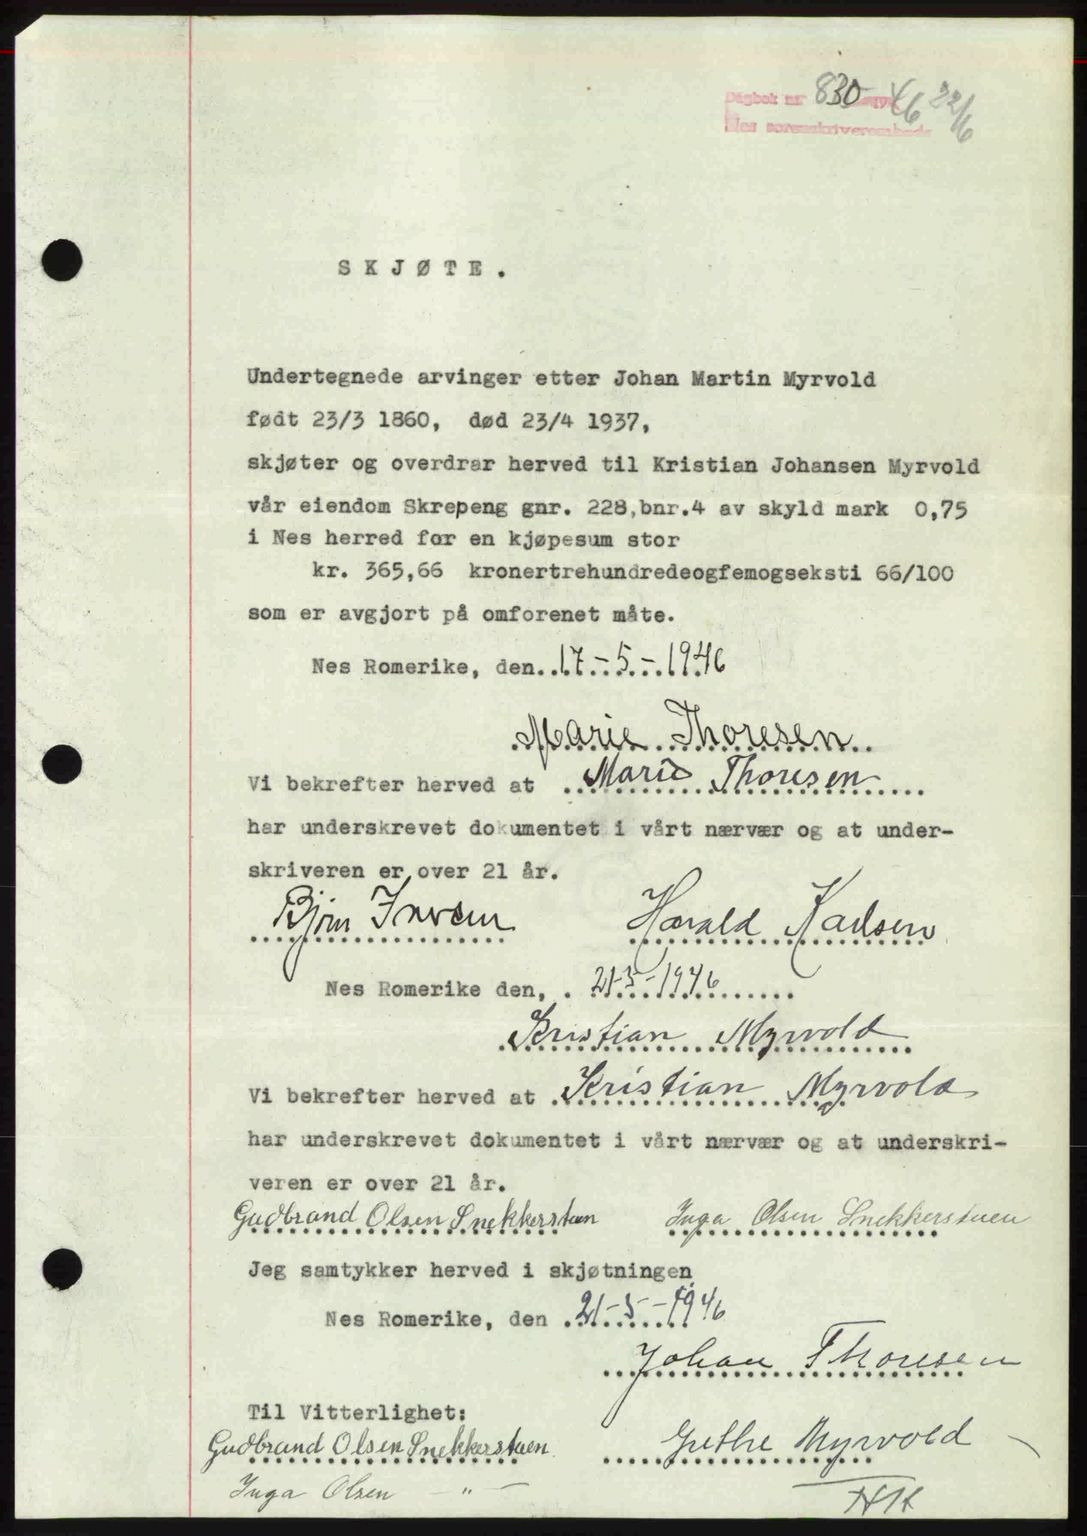 Dagbok nr 830 1946 22/6
Nes sorenskriverembede
SKJØTE.
Undertegnede arvinger etter Johan Martin Myrvold
født 23/3 1860, død 23/4 1937,
skjøter og overdrar herved til Kristian Johansen Myrvold
vår eiendom Skrepeng gnr. 228,bnr.4 av skyld mark 0,75
i Nes herred for en kjøpesum stor
kr. 365,66 kronertrehundredeogfemogseksti 66/100
som er avgjort på omforenet måte.
Nes Romerike, den 17-5-1946
Marie Thoresen
Vi bekrefter herved at Marie Thoresen
har underskrevet dokumentet i vårt nærvær og at under-
skriveren er over 21 år.
Bjørn Harald Karlsen
Nes Romerike den, 21-5-1946
Kristian Myrvold
Vi bekrefter herved at Kristian Myrvold
har underskrevet dokumentet i vårt nærvær og at underskri-
veren er over 21 år.
Gudbrand Olsen Snekkerstuen Inga Olsen Snekkerstuen
Jeg samtykker herved i skjøtningen
Nes Romerike, den 21-5-1946
Johan Thoresen
Til Vitterlighet:
Gudbrand Olsen Snekkerstuen Grethe Myrvold
Inga Olsen — " —